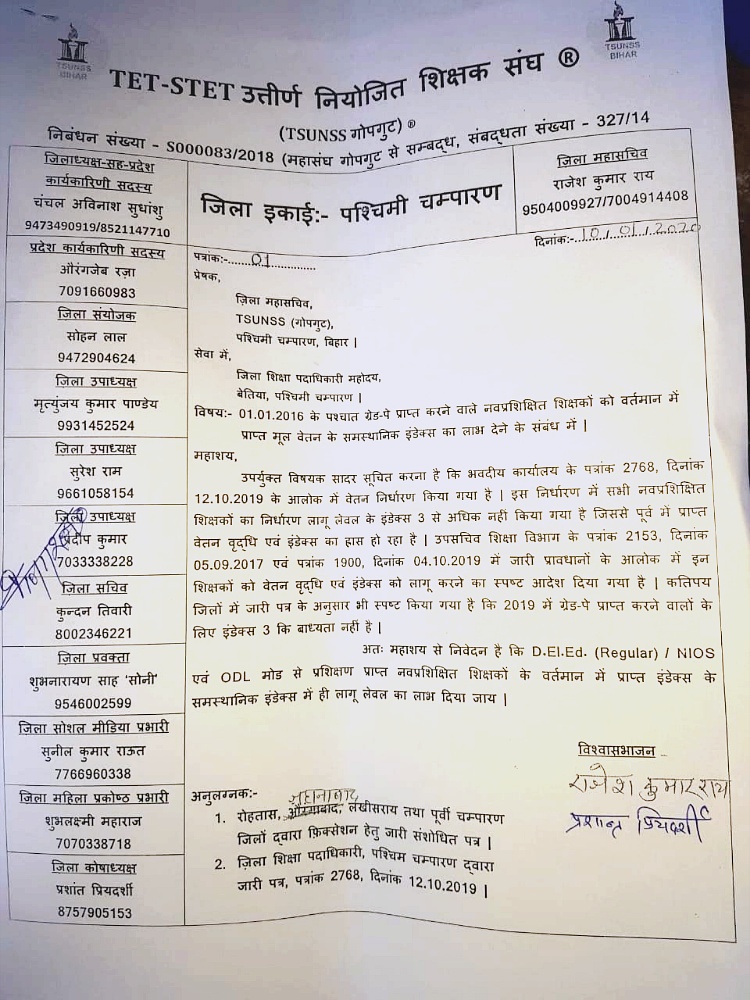 TSUNSS
BIHAR
TSUNSS
BIHAR
TET-STET उत्तीर्ण नियोजित शिक्षक संघ ®
(TSUNSS गोपगुट) ®
निबंधन संख्या - S000083/2018 (महासंघ गोपगुट से सम्बद्ध, संबद्धता संख्या - 327/14
जिलाध्यक्ष-सह-प्रदेश
कार्यकारिणी सदस्य
चंचल अविनाश सुधांशु
9473490919/8521147710
जिला इकाई:- पश्चिमी चम्पारण
जिला महासचिव
राजेश कुमार राय
9504009927/7004914408
प्रदेश कार्यकारिणी सदस्य
औरंगजेब रज़ा
7091660983
जिला संयोजक
सोहन लाल
9472904624
जिला उपाध्यक्ष
मृत्युंजय कुमार पाण्डेय
9931452524
जिला उपाध्यक्ष
सुरेश राम
9661058154
जिला उपाध्यक्ष
प्रदीप कुमार
7033338228
जिला सचिव
कुन्दन तिवारी
8002346221
जिला प्रवक्ता
शुभनारायण साह 'सोनी'
9546002599
जिला सोशल मीडिया प्रभारी
सुनील कुमार राऊत
7766960338
जिला महिला प्रकोष्ठ प्रभारी
शुभलक्ष्मी महाराज
7070338718
जिला कोषाध्यक्ष
प्रशांत प्रियदर्शी
8757905153
पत्रांक:-.......01..............
दिनांक:-10/01/2020
प्रेषक,
ज़िला महासचिव,
TSUNSS (गोपगुट),
पश्चिमी चम्पारण, बिहार |
सेवा में,
जिला शिक्षा पदाधिकारी महोदय,
बेतिया, पश्चिमी चम्पारण |
विषय:- 01.01.2016 के पश्चात ग्रेड-पे प्राप्त करने वाले नवप्रशिक्षित शिक्षकों को वर्तमान में
प्राप्त मूल वेतन के समस्थानिक इंडेक्स का लाभ देने के संबंध में |
महाशय,
उपर्युक्त विषयक सादर सूचित करना है कि भवदीय कार्यालय के पत्रांक 2768, दिनांक
12.10.2019 के आलोक में वेतन निर्धारण किया गया है | इस निर्धारण में सभी नवप्रशिक्षित
शिक्षकों का निर्धारण लागू लेवल के इंडेक्स 3 से अधिक नहीं किया गया है जिससे पूर्व में प्राप्त
वेतन वृद्धि एवं इंडेक्स का ह्रास हो रहा है | उपसचिव शिक्षा विभाग के पत्रांक 2153, दिनांक
05.09.2017 एवं पत्रांक 1900, दिनांक 04.10.2019 में जारी प्रावधानों के आलोक में इन
शिक्षकों को वेतन वृद्धि एवं इंडेक्स को लागू करने का स्पष्ट आदेश दिया गया है | कतिपय
जिलों में जारी पत्र के अनुसार भी स्पष्ट किया गया है कि 2019 में ग्रेड-पे प्राप्त करने वालों के
लिए इंडेक्स 3 कि बाध्यता नहीं है |
अतः महाशय से निवेदन है कि D.El.Ed. (Regular) / NIOS
एवं ODL मोड से प्रशिक्षण प्राप्त नवप्रशिक्षित शिक्षकों के वर्तमान में प्राप्त इंडेक्स के
समस्थानिक इंडेक्स में ही लागू लेवल का लाभ दिया जाय |
विश्वासभाजन
राजेश कुमार राय
प्रशान्त प्रियदर्शी
अनुलग्नक:-
जहानाबाद
1. रोहतास, औरंगाबाद, लखीसराय तथा पूर्वी चम्पारण
जिलों द्वारा फ़िक्सेशन हेतु जारी संशोधित पत्र |
2. ज़िला शिक्षा पदाधिकारी, पश्चिम चम्पारण द्वारा
जारी पत्र, पत्रांक 2768, दिनांक 12.10.2019 |